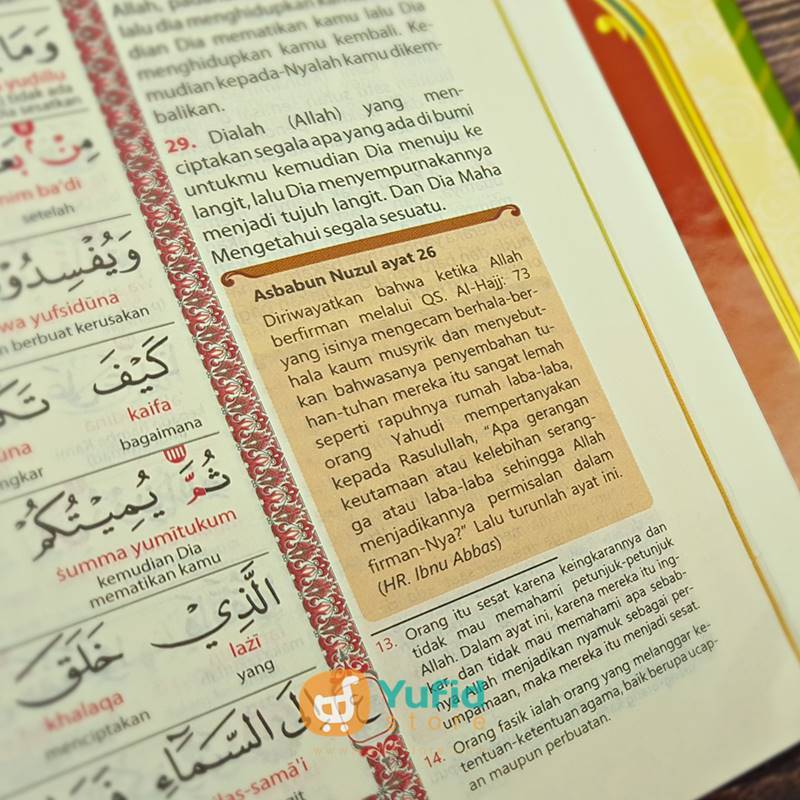 وَمَا
yuḍillu
tidak ada
مِنْۢ بَعْ
mim ba'di
setelah
وَيُفْسِدُوْ
wa yufsidūna
berbuat kerusakan
كَيْفَ
kaifa
bagaimana
ثُمَّ يُمِيْتُكُمْ
ṡumma yumītukum
kemudian Dia
mematikan kamu
الَّذِيْ خَلَقَ
lażī
yang
khalaqa
menciptakan
السَّمَاۤءِ
las-samā'i
lalu dia menghidupkan kamu lalu Dia
dian Dia mematikan kamu lalu Dia
menghidupkan kamu kembali. Ke-
mudian kepada-Nyalah kamu dikem-
balikan.
29. Dialah (Allah) yang men-
ciptakan segala apa yang ada di bumi
untukmu kemudian Dia menuju ke
langit, lalu Dia menyempurnakannya
menjadi tujuh langit. Dan Dia Maha
Mengetahui segala sesuatu.
Asbabun Nuzul ayat 26
Diriwayatkan bahwa ketika Allah
berfirman melalui QS. Al-Hajj: 73
yang isinya mengecam berhala-ber-
hala kaum musyrik dan menyebut-
kan bahwasanya penyembahan tu-
han-tuhan mereka itu sangat lemah
seperti rapuhnya rumah laba-laba,
orang Yahudi mempertanyakan
kepada Rasulullah, "Apa gerangan
keutamaan atau kelebihan serang-
ga atau laba-laba sehingga Allah
menjadikannya permisalan dalam
firman-Nya?" Lalu turunlah ayat ini.
(HR. Ibnu Abbas)
13. Orang itu sesat karena keingkarannya dan
tidak mau memahami petunjuk-petunjuk
Allah. Dalam ayat ini, karena mereka itu ing-
kar dan tidak mau memahami apa sebab-
nya Allah menjadikan nyamuk sebagai per-
umpamaan, maka mereka itu menjadi sesat.
14. Orang fasik ialah orang yang melanggar ke-
tentuan-ketentuan agama, baik berupa ucap-
an maupun perbuatan.
Yufid
store